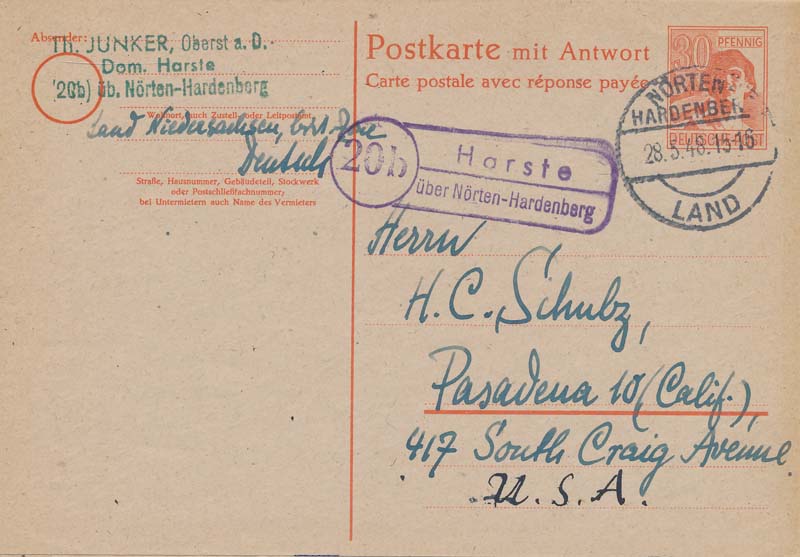 Absender:
Th. JUNKER, Oberst a. D.
Dom. Harste
(20b) üb. Nörten-Hardenberg
Wohnort, auch Zustell- oder Leitpostamt
Land Niedersachsen, brit. Zone
Deutschl.
Straße, Hausnummer, Gebäudeteil, Stockwerk
oder Postschließfachnummer;
bei Untermietern auch Name des Vermieters
Postkarte mit Antwort
Carte postale avec réponse payée
30 PFENNIG
DEUTSCHE POST
NÖRTEN-
HARDENBERG
28.5.48.15-16
LAND
20b
Harste
über Nörten-Hardenberg
Herrn
H. C. Schulz,
Pasadena 10 (Calif.),
417 South Craig Avenue
U. S. A.